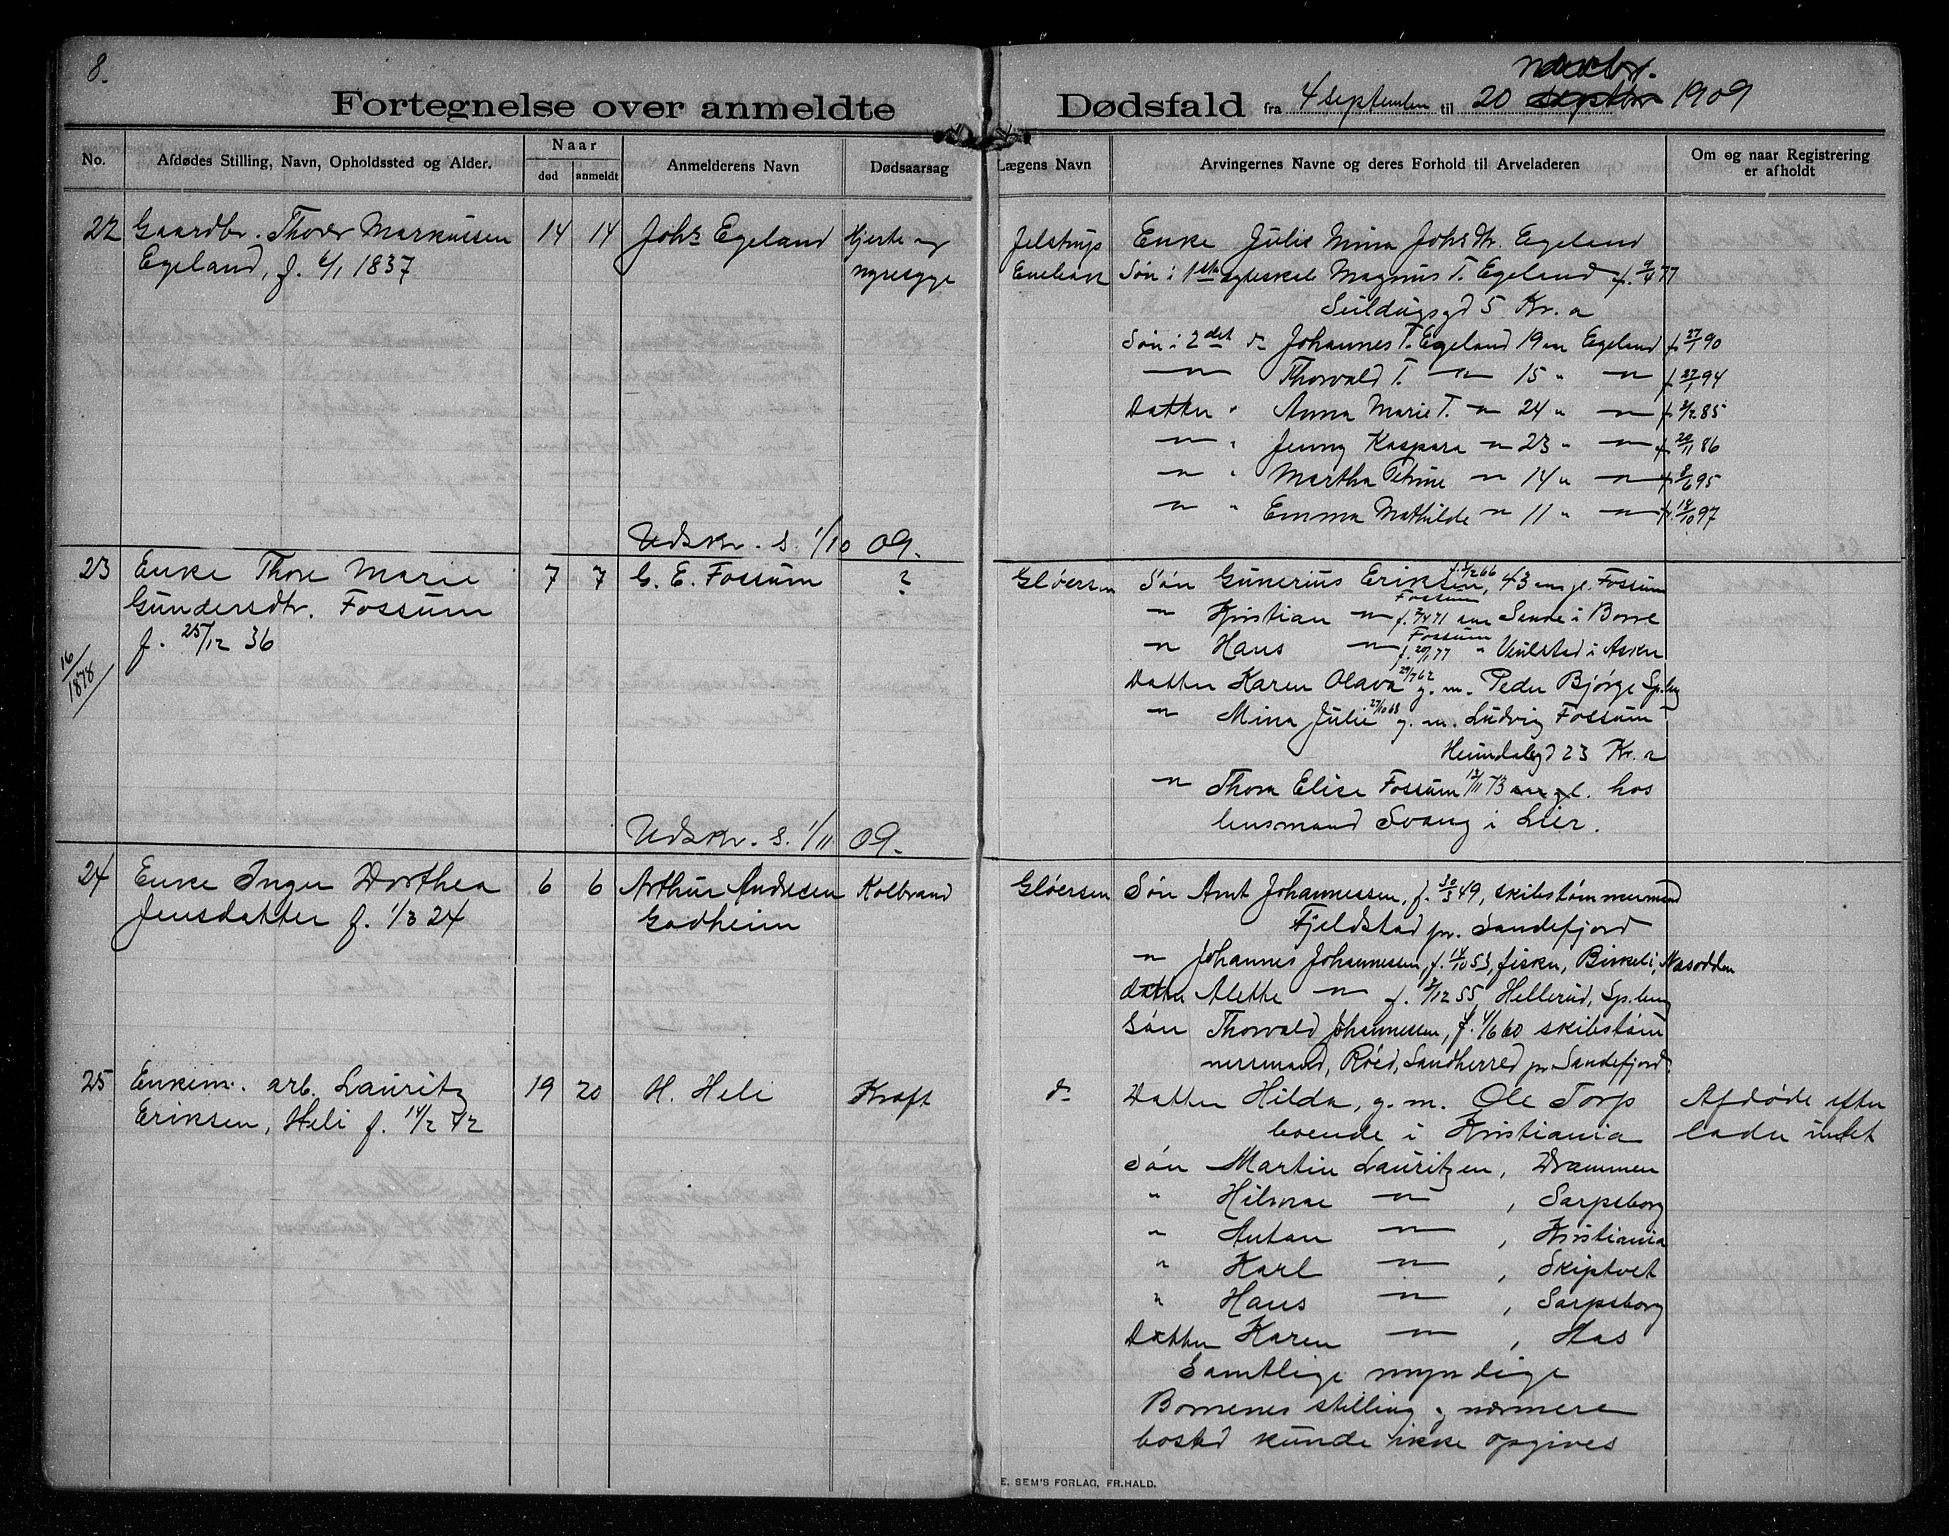 8.
Fortegnelse over anmeldte Dødsfald fra 4 september til 20 septbr novbr. 1909
No. Afdødes Stilling, Navn, Opholdssted og Alder. Naar død anmeldt Anmelderens Navn Dødsaarsag Lægens Navn Arvingernes Navne og deres Forhold til Arveladeren Om og naar Registrering er afholdt
22 Gaardbr. Thorer Markussen 14 14 Johs Egeland Hjerte og
Egeland, f. 6/1 1837 nyresyge
Jelstrup Enke Julie Mina Johsdtr. Egeland
Enebak Søn i 1ste egteskab Magnus T. Egeland f. 9/4 77
5 Kr.a
Søn i 2det do Johannes T. Egeland 19 aar Egeland f 27/1 90
— " — Thorvald T. — " — 15 " — " — f 27/1 94
Datter " Anna Marie T. — " — 24 " — " — f 2/2 85
— " — " Jenny Kaspara — " — 23 " — " — f 20/11 86
— " — " Martha Petrine — " — 14 " — " — f 8/6 95
" " Emma Mathilde — " — 11 " — " — f. 18/10 97
Udskr. s. 1/10 09.
23 Enke Thore Marie 7 7 G. E. Fossum ?
Gundersdtr. Fossum
f. 25/12 36
16/1878
Gløersen Søn Gunerius Eriksen, f. 2/2 66 43 aar gl. Fossum
" Kristian — " — Fossum f. 2/4 71 Sande i Borre
" Hans — " — Fossum f. 20/1 77 " i Asker
Datter Karen Olava 29/7 62 g. m. Peder Bjørge Sp.berg
" Mina Julie 27/10 68 g. m. Ludvig Fossum
Heimdalsgd 23 Kr.a
— " — Thora Elise Fossum 12/11 73 hos
lensmand Svang i Lier.
Udskr. s. 1/11 09.
24 Enke Inger Dorthea 6 6 Arthur Andresen Kolbrand
Jensdatter f. 1/3 24 Godheim
Gløersen Søn Arnt Johannessen, f. 30/3 49, skibstømmermand
Fjeldstad pr. Sandefjord
" Johannes Johannessen, f. 18/10 53, fisker, Birkeli, Næsodden
datter Alette — " — f. 3/12 55, Hellerud, Sp.berg
Søn Thorvald Johannessen, f. 4/6 60 skibstøm
mermand, Røed, Sandherred pr Sandefjord.
25 Enkem. arb. Lauritz 19 20 H. Heli Kræft
Eriksen, Heli f. 14/2 42
do Datter Hilda, g. m. Ole Torp Afdøde efter
boende i Kristiania lader intet
Søn Martin Lauritzen, Drammen
" Hilmar — " — , Sarpsborg
" Anton — " — , Kristiania
" Karl — " — , Skiptvet
" Hans — " — , Sarpsborg
Datter Karen — " — , Aas
Samtlige myndige
Børnenes stilling og nærmere
bosted kunde ikke opgives
E. SEM'S FORLAG, FR.HALD.